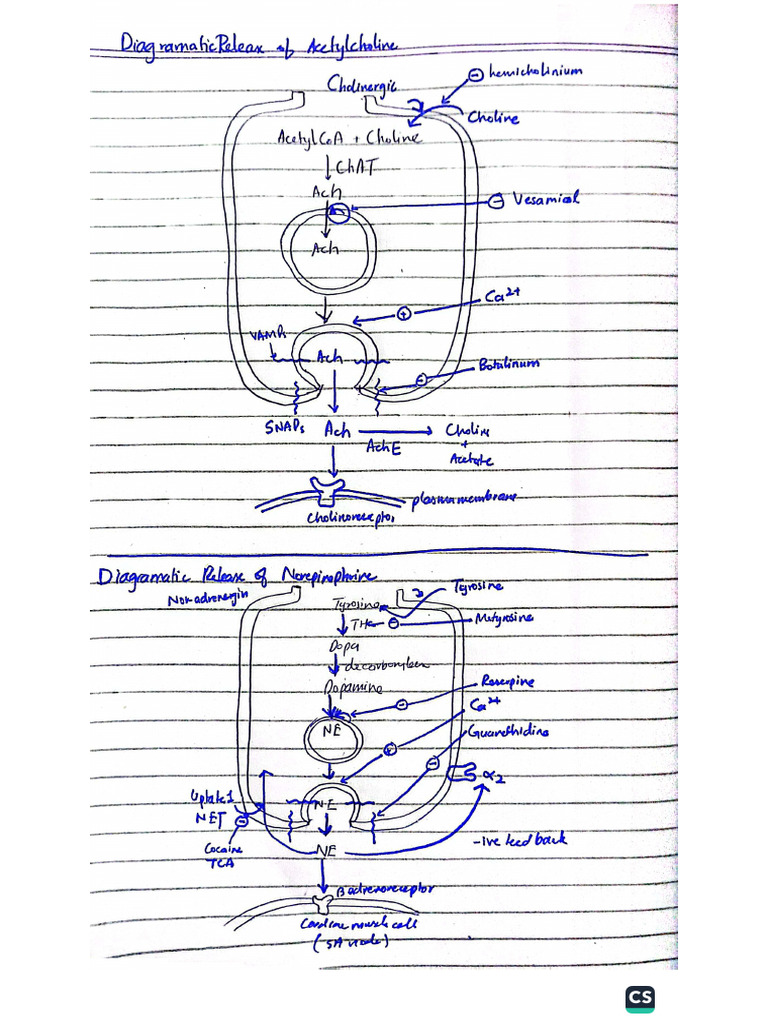 Diagramatic Release of Acetylcholine
Cholinergic
⊖ hemicholinium
Choline
Acetyl CoA + Choline
ChAT
Ach
⊖ Vesamicol
Ach
Ca2+
+
VAMPs
Ach
Botulinum
-
SNAPs
Ach
AchE
Choline
+
Acetate
plasma membrane
Cholinoreceptor
Diagramatic Release of Norepinephrine
Non-adrenergin
Tyrosine
Tyrosine
TH
-
Metyrosine
Dopa
decarboxylase
Dopamine
-
Reserpine
Ca2+
NE
Guanethidine
+
-
α2
Uptake 1
NE
NET
-
Cocaine
TCA
NE
-ive feedback
B adrenoreceptor
Cardiac muscle cell
(SA node)
CS